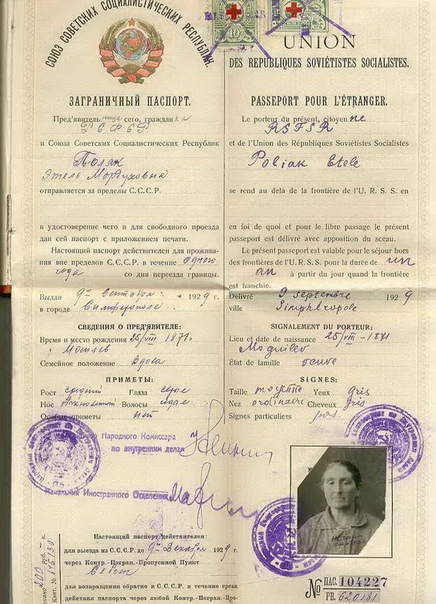 СОЮЗ СОВЕТСКИХ СОЦИАЛИСТИЧЕСКИХ РЕСПУБЛИК.
ЗАГРАНИЧНЫЙ ПАСПОРТ.
Пред'явитель сего, граждан ка
РСФСР
и Союза Советских Социалистических Республик
Поляк
Этель Мордуховна
отправляется за пределы С.С.С.Р.
в удостоверение чего и для свободного проезда
дан сей паспорт с приложением печати.
Настоящий паспорт действителен для прожива-
ния вне пределов С.С.С.Р. в течение одного
года со дня переезда границы.
Выдан 9го Сентября 1929 г.
в городе Симферополе
СВЕДЕНИЯ О ПРЕД'ЯВИТЕЛЕ:
Время и место рождения 25/VIII 1871 г.
Могилев
Семейное положение Вдова
ПРИМЕТЫ:
Рост средний Глаза серые
Нос Волосы
Особые приметы нет
Народного Комиссара
по внутренним делам
Начальник Иностранного Отделения
Настоящий паспорт действителен:
для выезда из С.С.С.Р. до 9го Декабря 1929 г.
через Контр.-Погран.-Пропускной Пункт
для возвращения обратно в С.С.С.Р. в течение срока
действия паспорта через любой Контр.-Погран.-
UNION
DES REPUBLIQUES SOVIÉTISTES SOCIALISTES.
PASSEPORT POUR L'ÉTRANGER.
Le porteur du présent, citoyen ne
RSFSR
et de l'Union des Républiques Soviétistes Socialistes
Poliak Etele
se rend au delà de la frontière de l'U. R. S. S. en
en foi de quoi et pour le libre passage le présent
passeport est délivré avec apposition du sceau.
Le présent passeport est valable pour le séjour hors
des frontières de l'U. R. S. S. pour la durée de un
an à partir du jour quand la frontière
est franchie.
Délivré 9 septembre 1929
ville Simphéropole
SIGNALEMENT DU PORTEUR:
Lieu et date de naissance 25/VIII-1871
Moguilev
État de famille veuve
SIGNES:
Taille moyenne Yeux gris
Nez ordinaire Cheveux gris
Signes particuliers pas
№ ПАС. 104227
FB. 620181